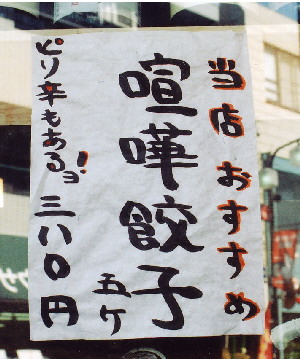 当店おすすめ
喧嘩餃子
五ケ
ピリ辛もあるヨ!
三八〇円